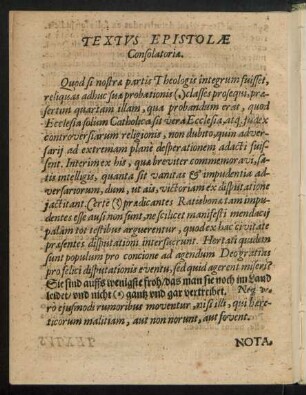 TEXTVS EPISTOLÆ
Consolatoriæ.
Quod si nostræ partis Theologis integrum fuisset,
reliquas adhuc suæ probationis (q) classes prosequi, præ-
sertim quartam illam, qua probandum erat, quod
Ecclesia solùm Catholica sit vera Ecclesia, atq, judex
controversiarum religionis, non dubito, quin adver-
sarij ad extremam planè desperationem adacti fuis-
sent. Interim ex his, quæ breviter commemoravi, sa-
tis intelligis, quanta sit vanitas & impudentia ad-
versariorum, dum, ut ais, victoriam ex disputatione
jactitant. Certè (r) prædicantes Ratisbonæ tam impu-
dentes esse ausi non sunt, ne scilicet manifesti mendacij
palàm tot testibus arguerentur, quod ex hac civitate
præsentes disputationi interfuerunt. Hortati quidem
sunt populum pro concione ad agendum Deo gratias
pro felici disputationis eventu, sed quid agerent miseri?
Sie sind auffs wenigste froh, das man sie noch im Land
leidet, und nicht (s) gantz und gar vertreibet. Neq, ve-
rò ejusmodi rumoribus moventur, nisi illi, qui hære-
ticorum malitiam, aut non norunt, aut fovent.
NOTA.